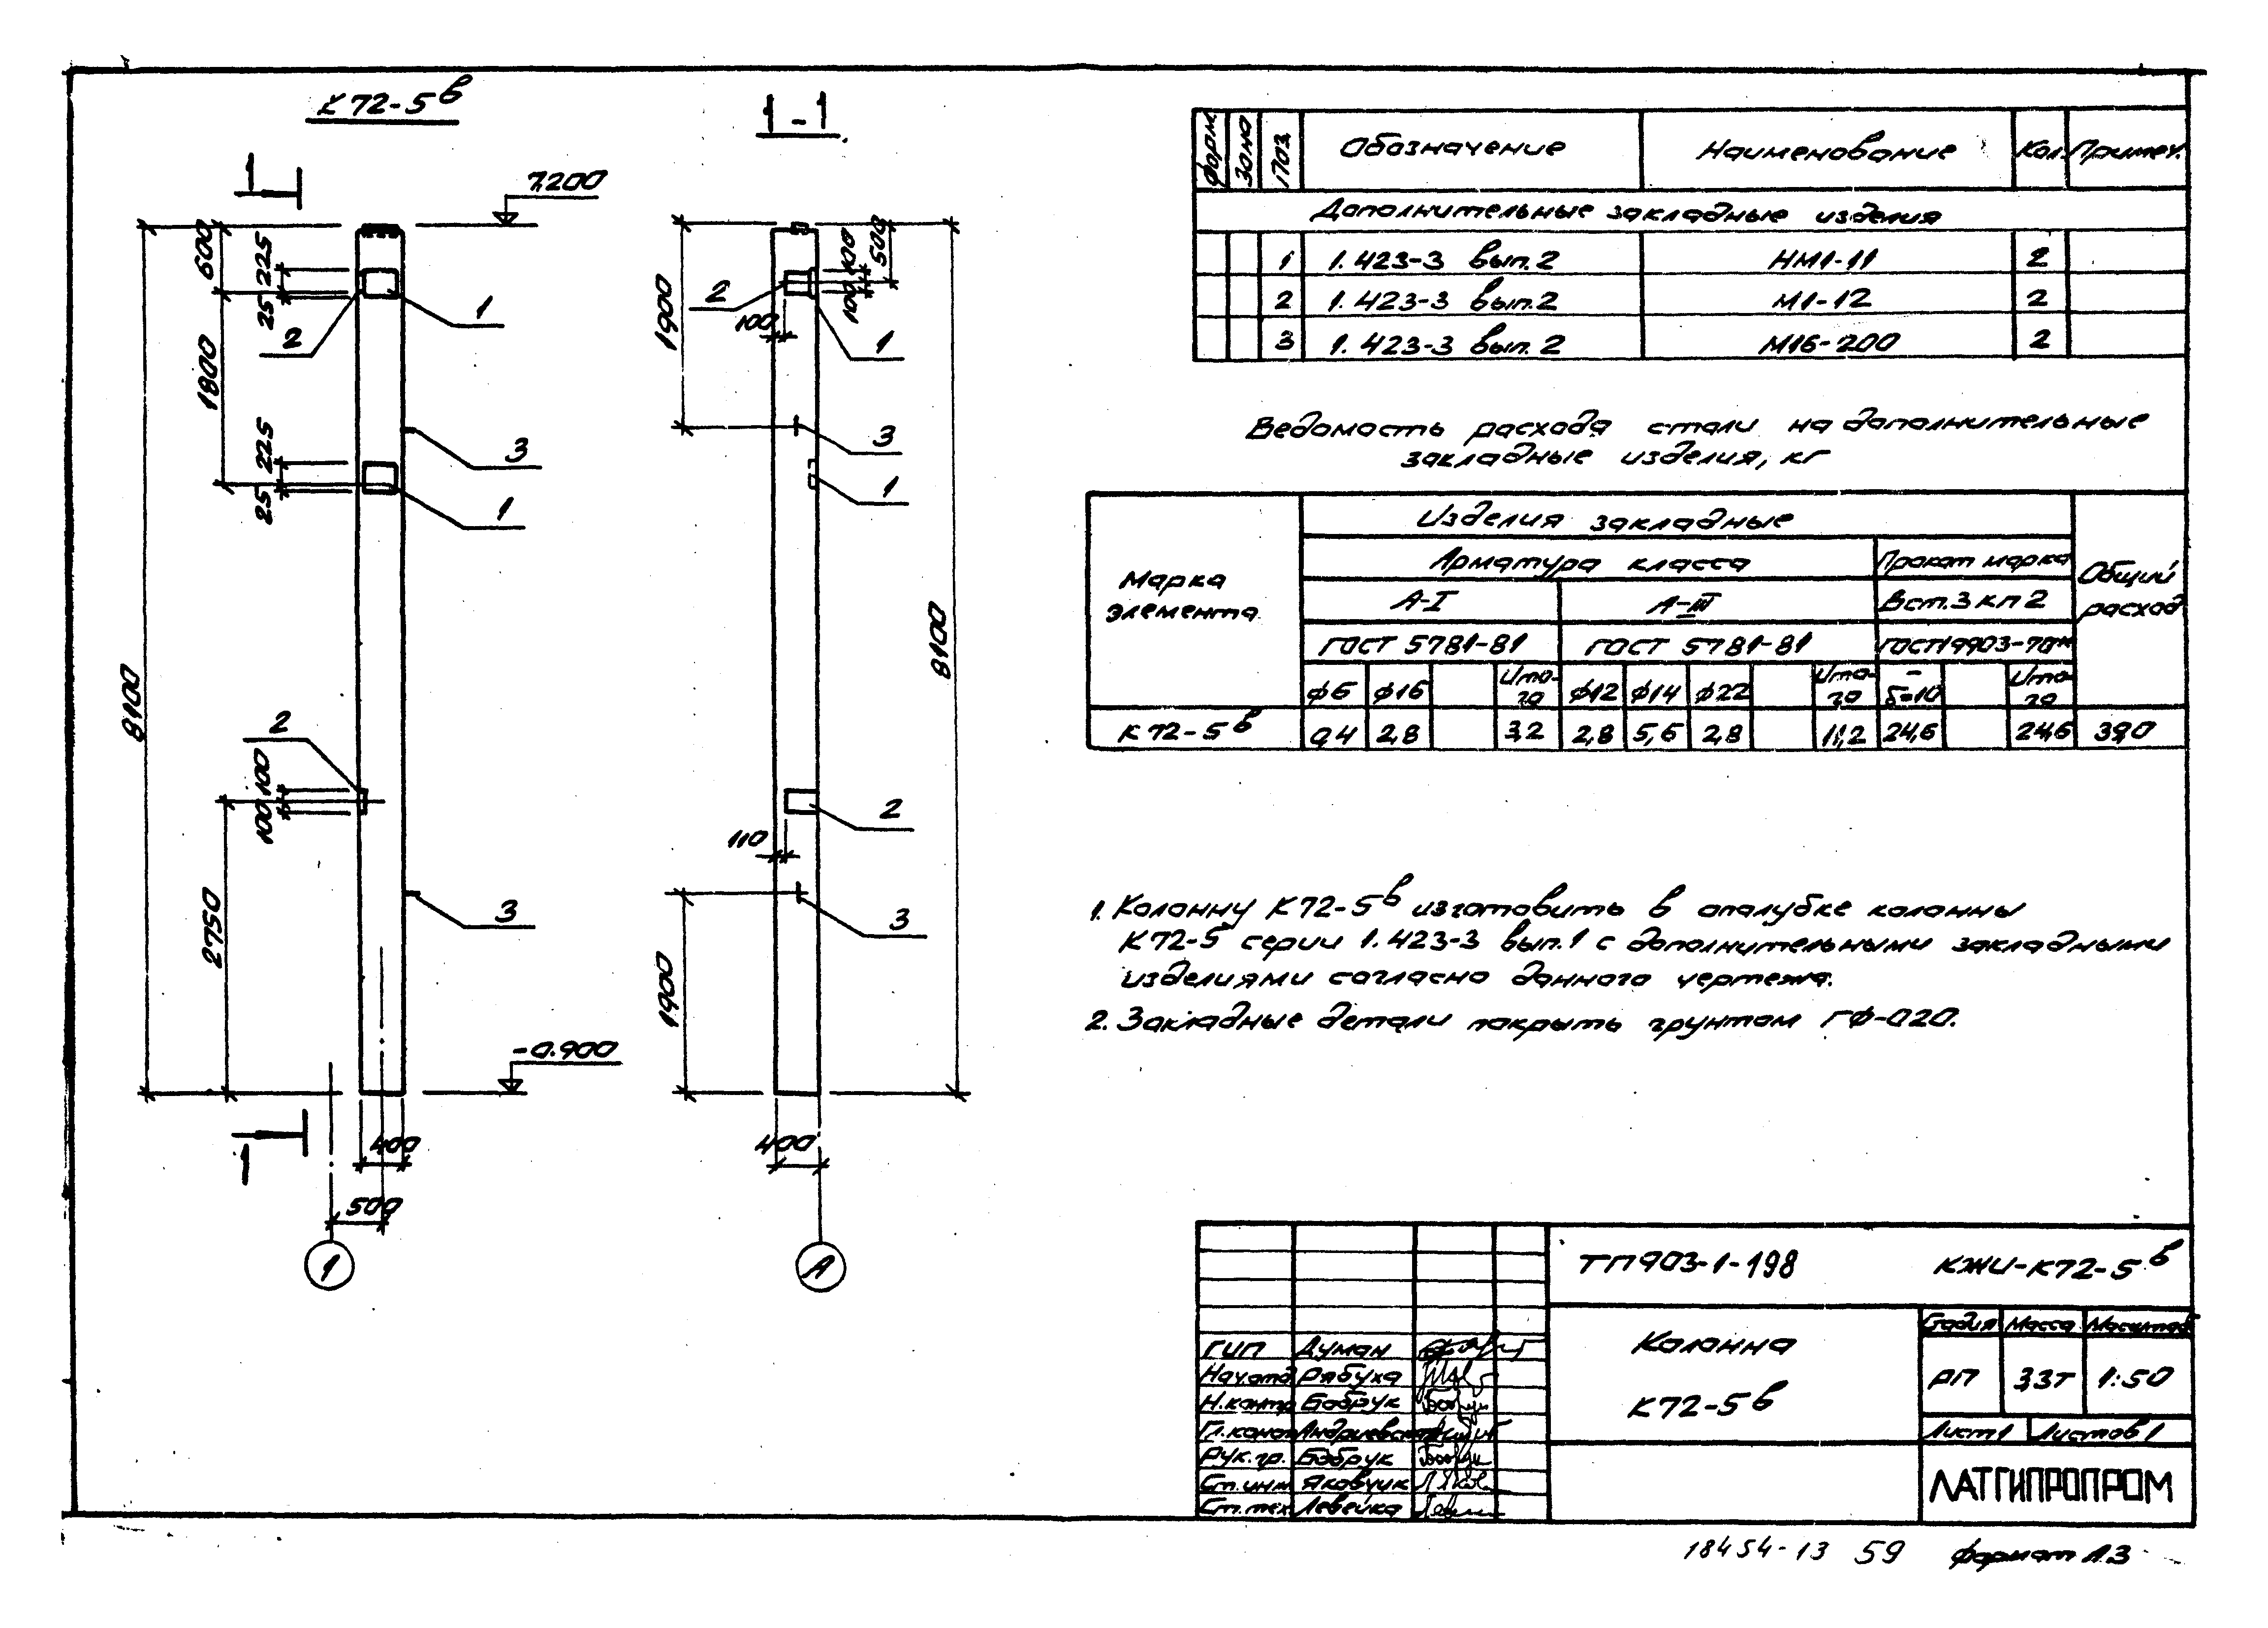 К72-5в
1
7.200
8100
600
225
25
1800
225
25
1
2
3
1
2
100
100
2750
3
-0.900
1
400
500
1
1-1
1900
500
100
100
100
2
1
3
1
8100
2
110
3
1900
400
А
Форм. Зона Поз. Обозначение Наименование Кол. Примеч.
Дополнительные закладные изделия
1 1.423-3 вып.2 НМ1-11 2
2 1.423-3 вып.2 М1-12 2
3 1.423-3 вып.2 М16-200 2
Ведомость расхода стали на дополнительные
закладные изделия, кг
Марка элемента
Изделия закладные
Общий расход
Арматура класса Прокат марка
А-I А-III Вст.3кп2
ГОСТ 5781-81 ГОСТ 5781-81 ГОСТ19903-74*
ф6 ф16 Итого ф12 ф14 ф22 Итого -δ=10 Итого
К72-5в 0,4 2,8 3,2 2,8 5,6 2,8 11,2 24,6 24,6 39,0
1. Колонну К72-5в изготовить в опалубке колонны
К72-5 серии 1.423-3 вып.1 с дополнительными закладными
изделиями согласно данного чертежа.
2. Закладные детали покрыть грунтом ГФ-020.
ТП903-1-198 КЖИ-К72-5в
Колонна
К72-5в
Стадия Масса Масштаб
РП 3,3т 1:50
Лист 1 Листов 1
ЛАТГИПРОПРОМ
ГИП Думан
Нач.отд. Рябуха
Н.контр. Бобрук
Гл.констр.
Рук.гр. Бобрук
Ст.инж. Яковчик
Ст.тех. Левейка
18454-13 59 формат А3